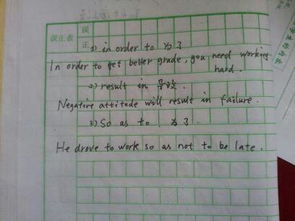 误正表
误
正
1) in order to 为了
In order to get better grade, you need working
hard.
2) result in 导致
Negative attitude will result in failure.
3) So as to 为了.
He drove to work so as not to be late.